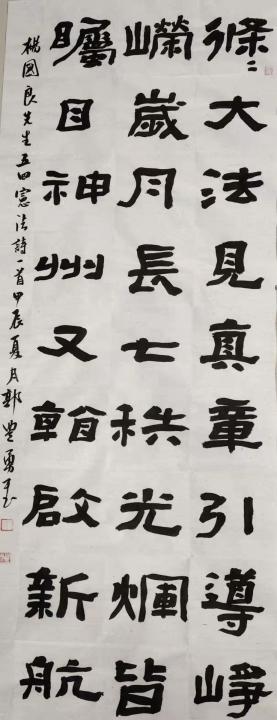 條〻大法見真章引導崢
嶸歲月長七秩光燗皆
矚目神州又韜啟新航
楊國良先生五四憲法詩一首甲辰夏月郭豐勇書